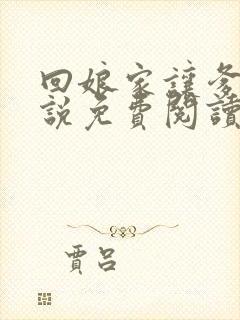 回娘家讓爹
説免費閱讀
賈呂